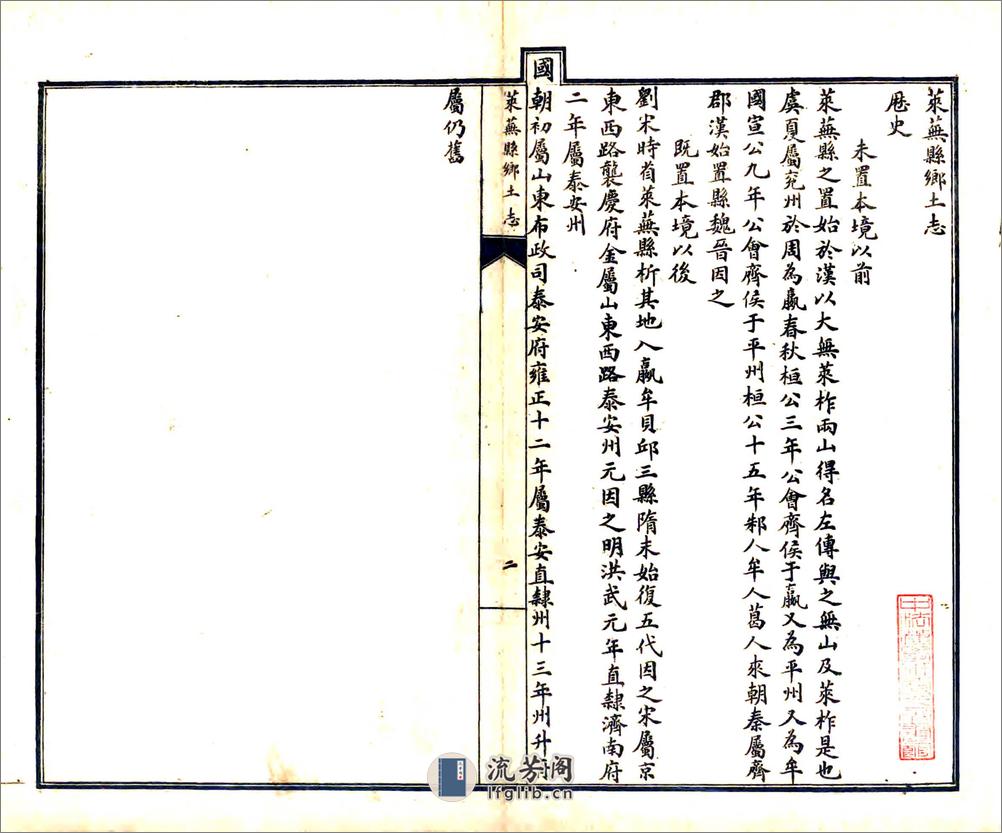 萊蕪縣鄉土志
歷史
未置本境以前
萊蕪縣之置始於漢以大無萊柞兩山得名左傳與之無山及萊柞是也
虞夏屬兖州於周為嬴春秋桓公三年公會齊侯于嬴又為平州又為牟
國宣公九年公會齊侯于平州桓公十五年邾人牟人葛人來朝秦屬齊
郡漢始置縣魏晉因之
既置本境以後
劉宋時省萊蕪縣析其地入嬴牟貝邱三縣隋末始復五代因之宋屬京
東西路襲慶府金屬山東西路泰安州元因之明洪武元年直隸濟南府
二年屬泰安州
國朝初屬山東布政司泰安府雍正十二年屬泰安直隸州十三年州升府
萊蕪縣鄉土志
二
屬仍舊
流芳阁
lfglib.cn